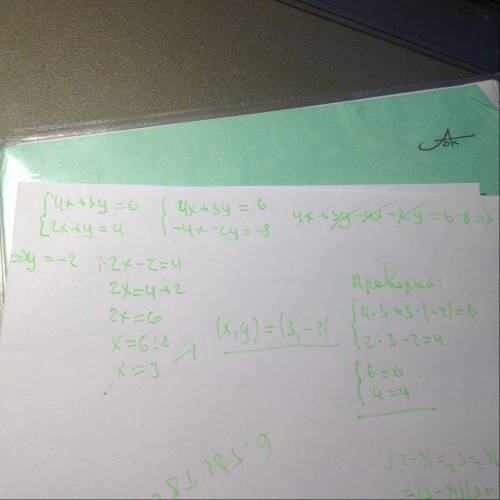 {4x+3y=6 {4x+3y=6 4x+3y-4x-2y=6-8=>
{2x+y=4 {-4x-2y=-8
=>y=-2 ; 2x-2=4
2x=4+2
2x=6
x=6:2
x=3
(x,y)=(3,-2)
Проверка:
{4·3+3·(-2)=6
{2·3-2=4
{6=6
{4=4